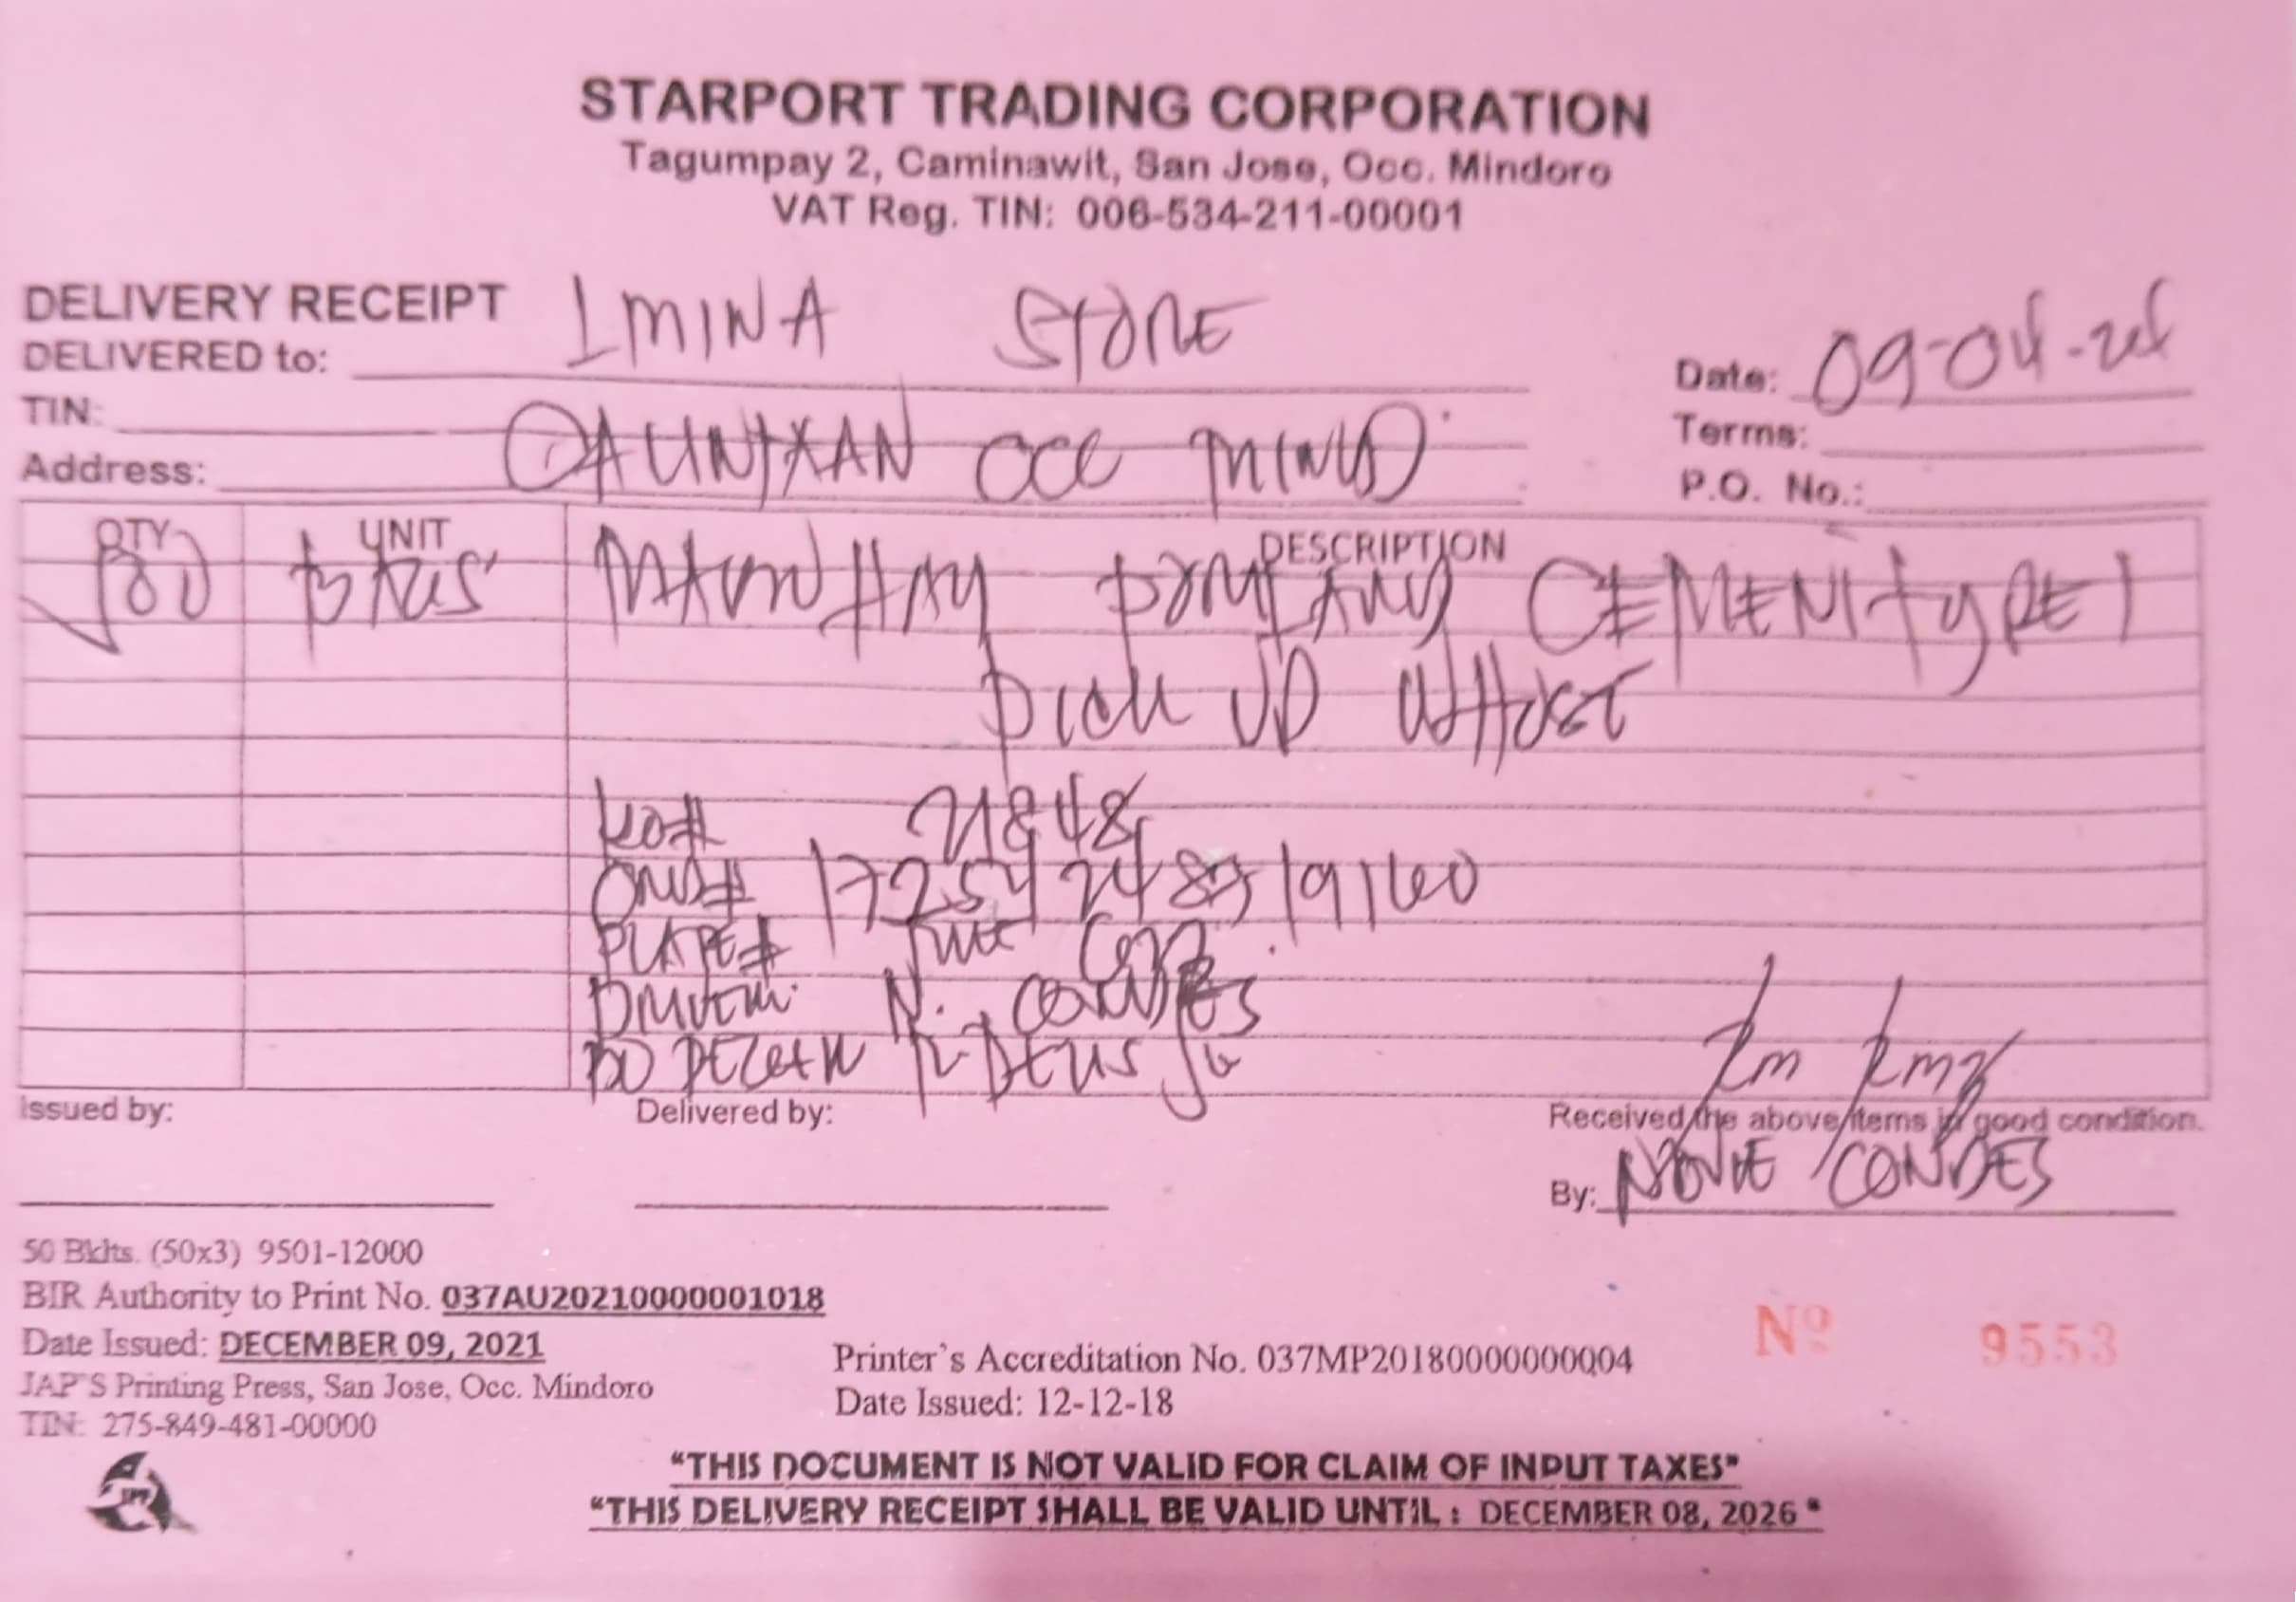 STARPORT TRADING CORPORATION
Tagumpay 2, Caminawit, San Jose, Occ. Mindoro
VAT Reg. TIN: 006-534-211-00001
DELIVERY RECEIPT
DELIVERED to: IMINA STORE
Date: 09-04-24
TIN:
Terms:
Address: OCC MIND
P.O. No.:
QTY UNIT DESCRIPTION
BAGS CEMENT TYPE 1
PICK UP WHOSE
21848
PLATE#
N. CONDES
Issued by: Delivered by: Received the above items in good condition.
By: NOVIE CONDES
50 Bklts. (50x3) 9501-12000
BIR Authority to Print No. 037AU20210000001018
Date Issued: DECEMBER 09, 2021
JAP'S Printing Press, San Jose, Occ. Mindoro
TIN: 275-849-481-00000
Printer's Accreditation No. 037MP20180000000004
Date Issued: 12-12-18
Nº 9553
"THIS DOCUMENT IS NOT VALID FOR CLAIM OF INPUT TAXES"
"THIS DELIVERY RECEIPT SHALL BE VALID UNTIL : DECEMBER 08, 2026"